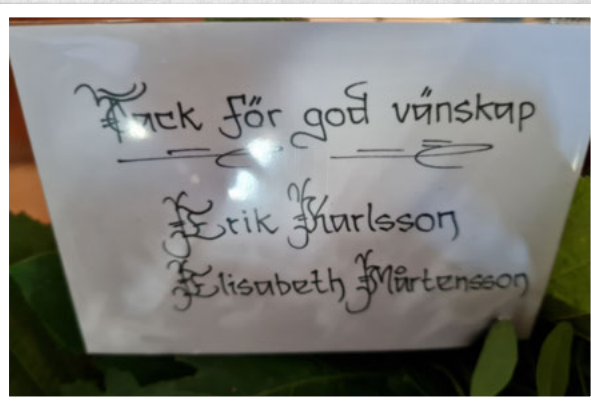 Tack för god vänskap
Erik Karlsson
Elisabeth Mårtensson